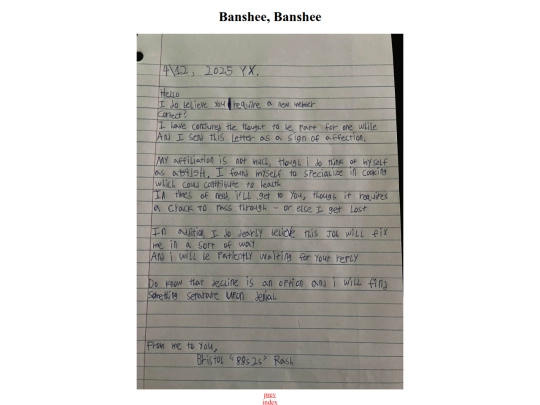 Banshee, Banshee
4\12, 2025 YX.
Hello
I do believe you require a new member
Correct?
I have conjured the thought to be part for one while
And I send this letter as a sign of affection.
My affiliation is not much, though I do think of myself
as I found myself to specialize in cooking
which could contribute to health
In times of need i'll get to you, though it requires
a crack to pass through - or else I get lost
In addition I do dearly believe this job will fix
me in a sort of way
And i will be patiently waiting for your reply
Do know that decline is an option and i will find
something separate upon denial
From me to you,
Bristol "88s2s" Rash
index